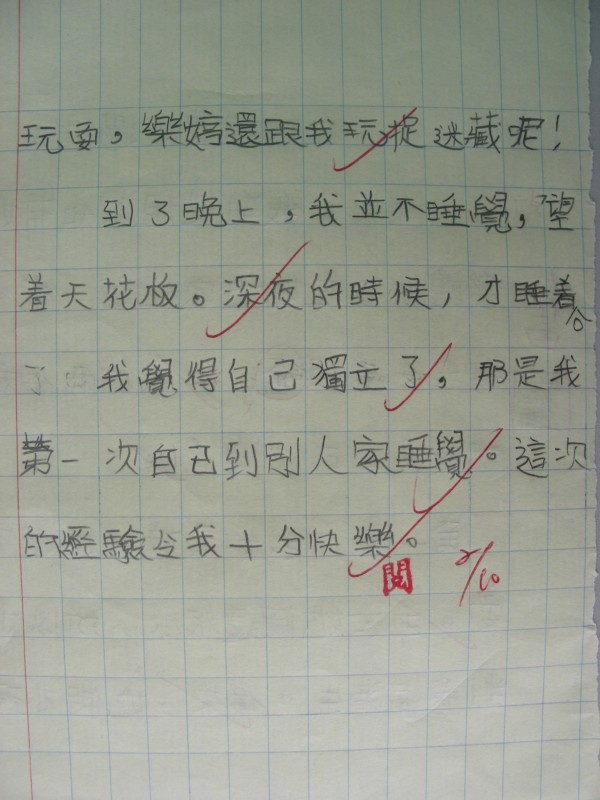 玩耍，樂婷還跟我玩捉迷藏呢！
到了晚上，我並不睡覺，望
着天花板。深夜的時候，才睡着
了 我覺得自己獨立了，那是我
第一次自己到別人家睡覺。這次
的經驗令我十分快樂。
閱 2/10